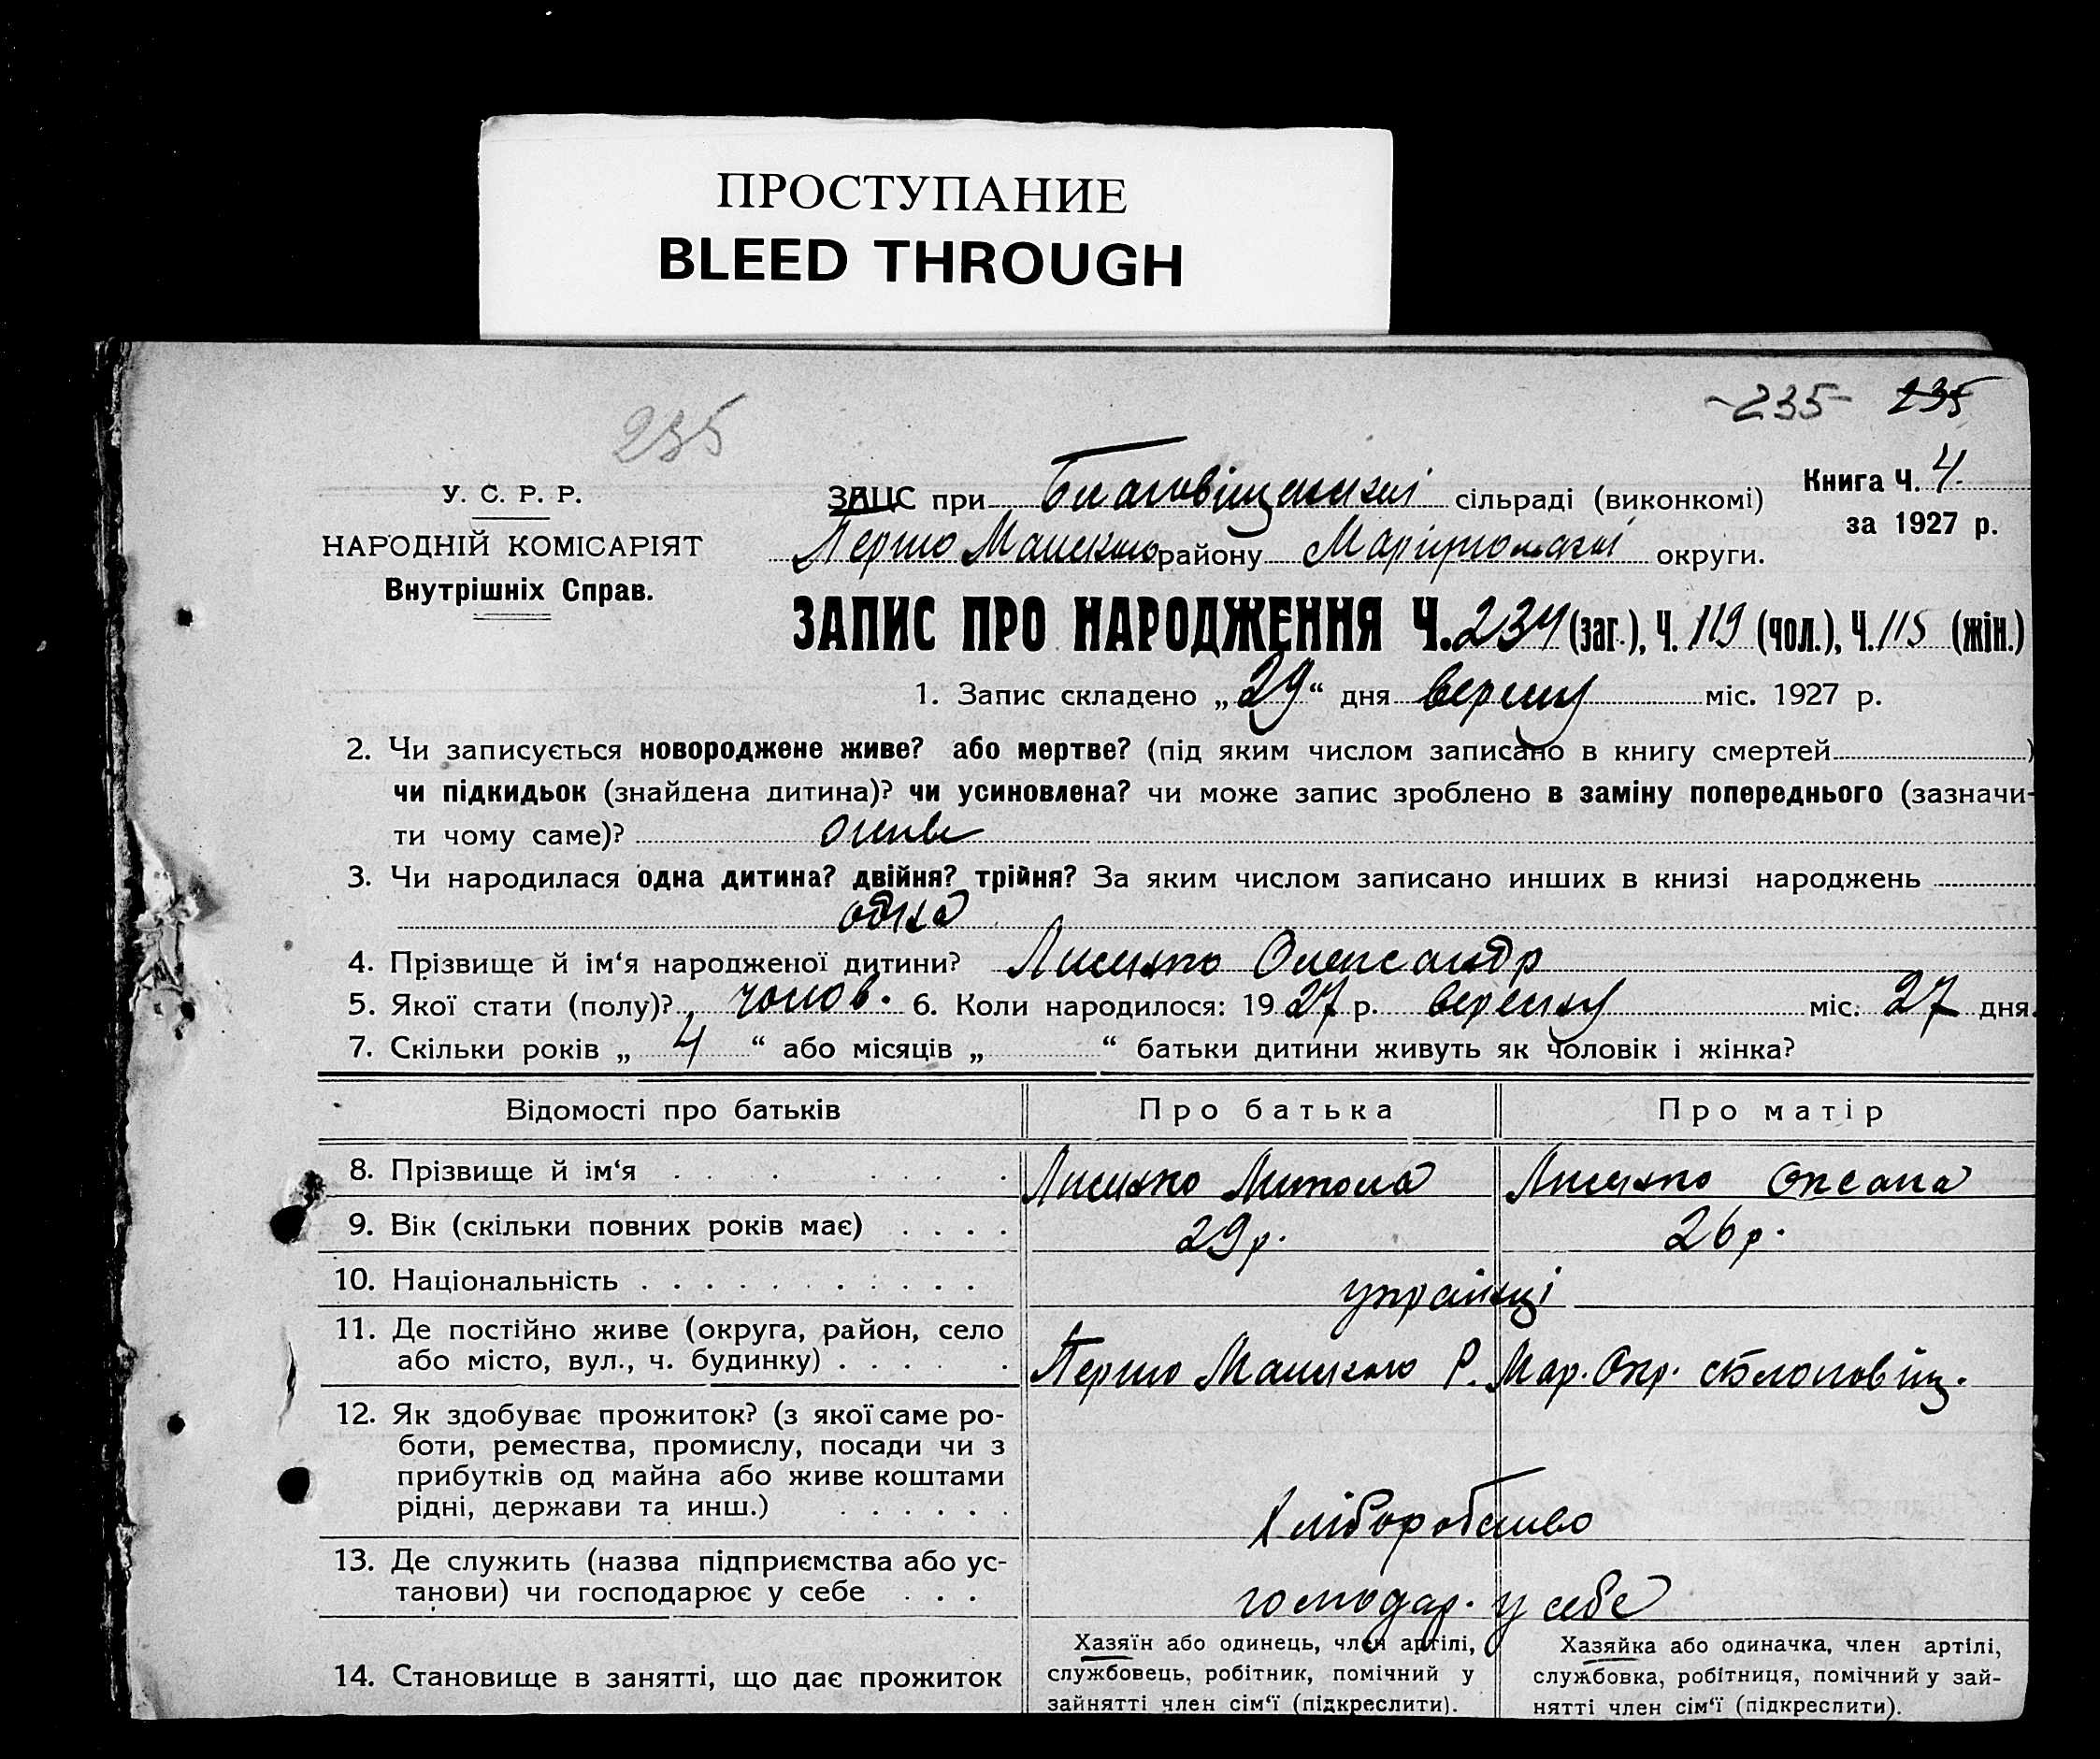 ПРОСТУПАНИЕ
BLEED THROUGH
-235- 235
235
У. С. Р. Р.
НАРОДНІЙ КОМІСАРІЯТ
Внутрішніх Справ.
Книга Ч. 4
за 1927 р.
ЗАЦС при Благовіщенській сільраді (виконкомі)
Першо Майського району Маріупольської округи.
ЗАПИС ПРО НАРОДЖЕННЯ Ч. 234 (заг.), Ч. 119 (чол.), Ч. 115 (жін.)
1. Запис складено „29“ дня вересня міс. 1927 р.
2. Чи записується новороджене живе? або мертве? (під яким числом записано в книгу смертей )
чи підкидьок (знайдена дитина)? чи усиновлена? чи може запис зроблено в заміну попереднього (зазначи-
ти чому саме)? живе
3. Чи народилася одна дитина? двійня? трійня? За яким числом записано инших в книзі народжень
одна
4. Прізвище й ім‘я народженої дитини? Лисенко Олександр
5. Якої стати (полу)? чолов. 6. Коли народилося: 1927 р. вересня міс. 27 дня.
7. Скільки років „ 4 “ або місяців „ “ батьки дитини живуть як чоловік і жінка?
Відомості про батьків Про батька Про матір
8. Прізвище й ім‘я Лисенко Микола Лисенко Оксана
9. Вік (скільки повних років має) 29 р. 26 р.
10. Національність українці
11. Де постійно живе (округа, район, село
або місто, вул., ч. будинку) Першо Майського Р. Мар. Окр.
12. Як здобуває прожиток? (з якої саме ро-
боти, ремества, промислу, посади чи з
прибутків од майна або живе коштами
рідні, держави та инш.) Хліборобство
13. Де служить (назва підприємства або ус-
танови) чи господарює у себе господар. у себе
14. Становище в занятті, що дає прожиток
Хазяїн або одинець, член артілі,
службовець, робітник, помічний у
зайнятті член сім‘ї (підкреслити).
Хазяйка або одиначка, член артілі,
службовка, робітниця, помічний у зай-
нятті член сім‘ї (підкреслити).